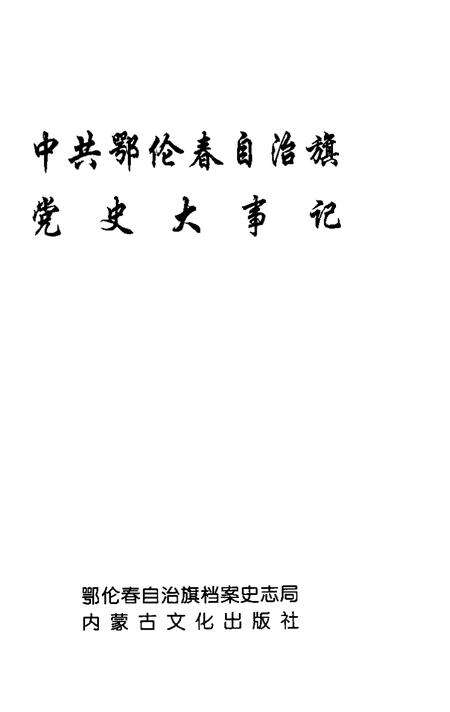 中共鄂伦春自治旗
党史大事记
鄂伦春自治旗档案史志局
内蒙古文化出版社